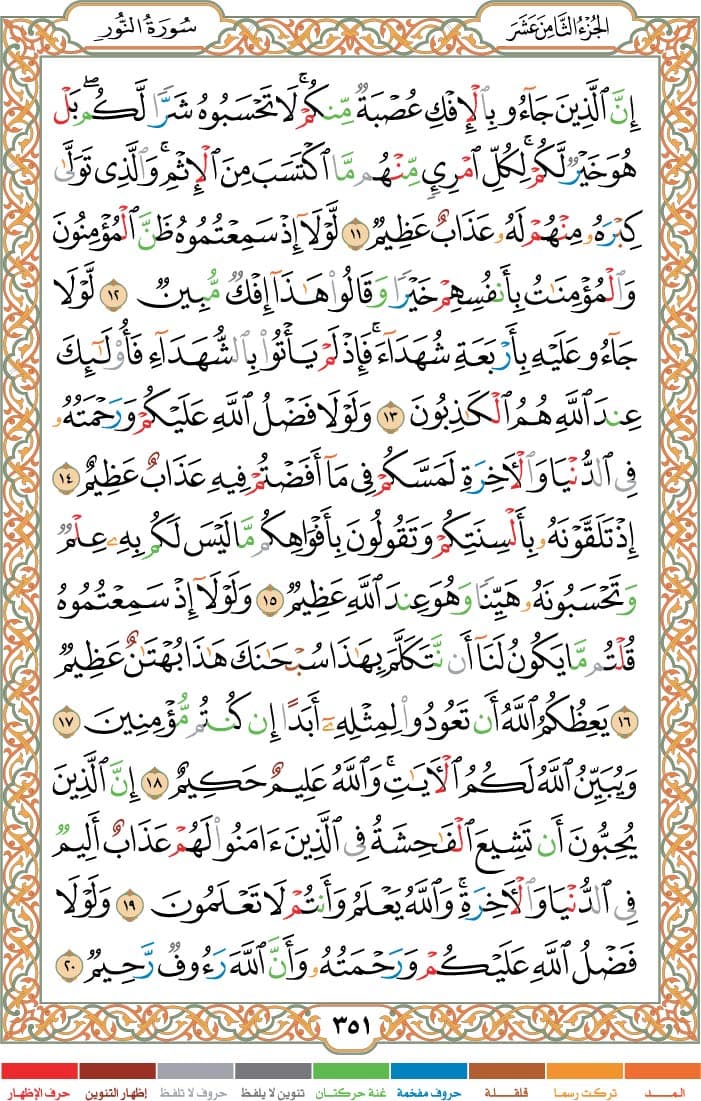 الجزء الثامن عشر
سورة النور
إِنَّ ٱلَّذِينَ جَآءُو بِٱلْإِفْكِ عُصْبَةٌ مِّنكُمْ ۚ لَا تَحْسَبُوهُ شَرًّا لَّكُم ۖ بَلْ
هُوَ خَيْرٌ لَّكُمْ ۚ لِكُلِّ ٱمْرِئٍ مِّنْهُم مَّا ٱكْتَسَبَ مِنَ ٱلْإِثْمِ ۚ وَٱلَّذِى تَوَلَّىٰ
كِبْرَهُۥ مِنْهُمْ لَهُۥ عَذَابٌ عَظِيمٌ ١١ لَّوْلَآ إِذْ سَمِعْتُمُوهُ ظَنَّ ٱلْمُؤْمِنُونَ
وَٱلْمُؤْمِنَٰتُ بِأَنفُسِهِمْ خَيْرًا وَقَالُوا۟ هَٰذَآ إِفْكٌ مُّبِينٌ ١٢ لَّوْلَا
جَآءُو عَلَيْهِ بِأَرْبَعَةِ شُهَدَآءَ ۚ فَإِذْ لَمْ يَأْتُوا۟ بِٱلشُّهَدَآءِ فَأُو۟لَٰٓئِكَ
عِندَ ٱللَّهِ هُمُ ٱلْكَٰذِبُونَ ١٣ وَلَوْلَا فَضْلُ ٱللَّهِ عَلَيْكُمْ وَرَحْمَتُهُۥ
فِى ٱلدُّنْيَا وَٱلْءَاخِرَةِ لَمَسَّكُمْ فِى مَآ أَفَضْتُمْ فِيهِ عَذَابٌ عَظِيمٌ ١٤
إِذْ تَلَقَّوْنَهُۥ بِأَلْسِنَتِكُمْ وَتَقُولُونَ بِأَفْوَاهِكُم مَّا لَيْسَ لَكُم بِهِۦ عِلْمٌ
وَتَحْسَبُونَهُۥ هَيِّنًا وَهُوَ عِندَ ٱللَّهِ عَظِيمٌ ١٥ وَلَوْلَآ إِذْ سَمِعْتُمُوهُ
قُلْتُم مَّا يَكُونُ لَنَآ أَن نَّتَكَلَّمَ بِهَٰذَا سُبْحَٰنَكَ هَٰذَا بُهْتَٰنٌ عَظِيمٌ
١٦ يَعِظُكُمُ ٱللَّهُ أَن تَعُودُوا۟ لِمِثْلِهِۦٓ أَبَدًا إِن كُنتُم مُّؤْمِنِينَ ١٧
وَيُبَيِّنُ ٱللَّهُ لَكُمُ ٱلْءَايَٰتِ ۚ وَٱللَّهُ عَلِيمٌ حَكِيمٌ ١٨ إِنَّ ٱلَّذِينَ
يُحِبُّونَ أَن تَشِيعَ ٱلْفَٰحِشَةُ فِى ٱلَّذِينَ ءَامَنُوا۟ لَهُمْ عَذَابٌ أَلِيمٌ
فِى ٱلدُّنْيَا وَٱلْءَاخِرَةِ ۚ وَٱللَّهُ يَعْلَمُ وَأَنتُمْ لَا تَعْلَمُونَ ١٩ وَلَوْلَا
فَضْلُ ٱللَّهِ عَلَيْكُمْ وَرَحْمَتُهُۥ وَأَنَّ ٱللَّهَ رَءُوفٌ رَّحِيمٌ ٢٠
٣٥١
المــد تركت رسما قلقلة حروف مفخمة غنة حركتان تنوين لا يلفظ حروف لا تلفظ إظهار التنوين حرف الإظهار